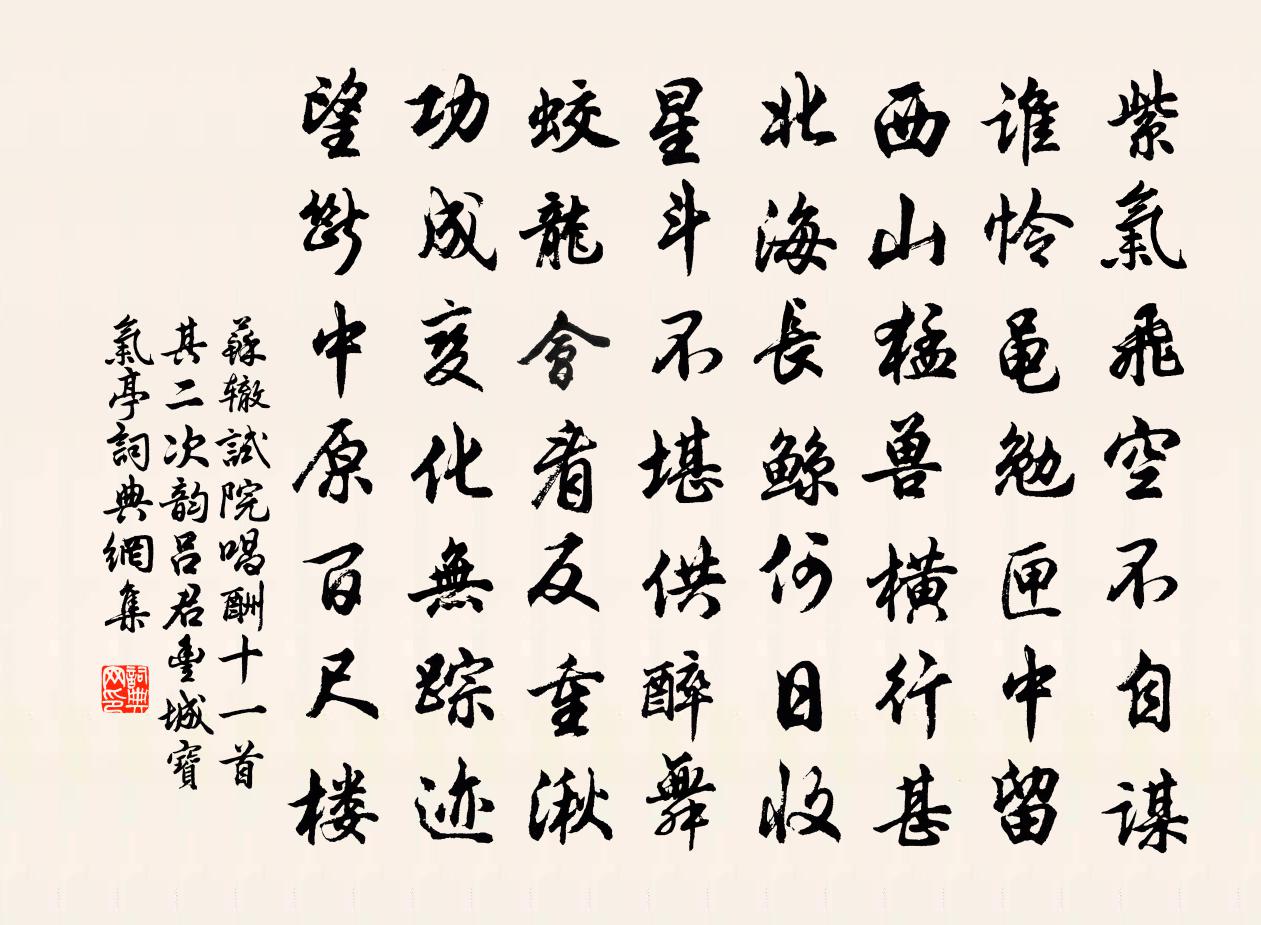 紫氣飛空不自謀
谁怜黾勉匣中留
西山猛兽横行甚
北海長鲸何日收
星斗不堪供醉舞
蛟龍會看反重湫
功成变化無踪迹
望斷中原百尺楼
蘇辙試院唱酬十一首
其二次韵吕君豐城寶
氣亭詞典網集
詞典网印